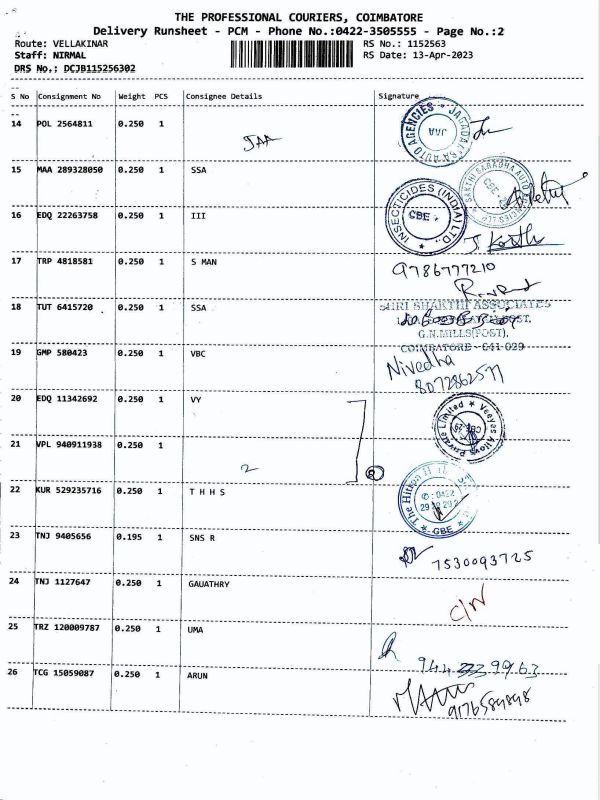 THE PROFESSIONAL COURIERS, COIMBATORE
Delivery Runsheet - PCM - Phone No.:0422-3505555 - Page No.:2
Route: VELLAKINAR RS No.: 1152563
Staff: NIRMAL RS Date: 13-Apr-2023
DRS No.: DCJB115256302
S No Consignment No Weight PCS Consignee Details Signature
14 POL 2564811 0.250 1
JAA
JAGADALSA AUTO AGENCIES JAA
15 MAA 289328050 0.250 1 SSA
SAKTHI SARADHA AUTO AGENCIES LLP CBE
16 EDQ 22263758 0.250 1 III
INSECTICIDES (INDIA) LTD., CBE
17 TRP 4818581 0.250 1 S MAN
9786777210
18 TUT 6415720 0.250 1 SSA
SHRI SHAKTHI ASSOCIATES
G.N.MILLS(POST),
COIMBATORE - 641 029
19 GMP 580423 0.250 1 VBC
Nivedha
8072862577
20 EDQ 11342692 0.250 1 VY
Veeyes Alloys Private Limited
21 VPL 940911938 0.250 1
2
2
22 KUR 529235716 0.250 1 T H H S
The Hilton H
0422
CBE
23 TNJ 9405656 0.195 1 SNS R
7530093725
24 TNJ 1127647 0.250 1 GAUATHRY
C/N
25 TRZ 120009787 0.250 1 UMA
26 TCG 15059087 0.250 1 ARUN
9176589898